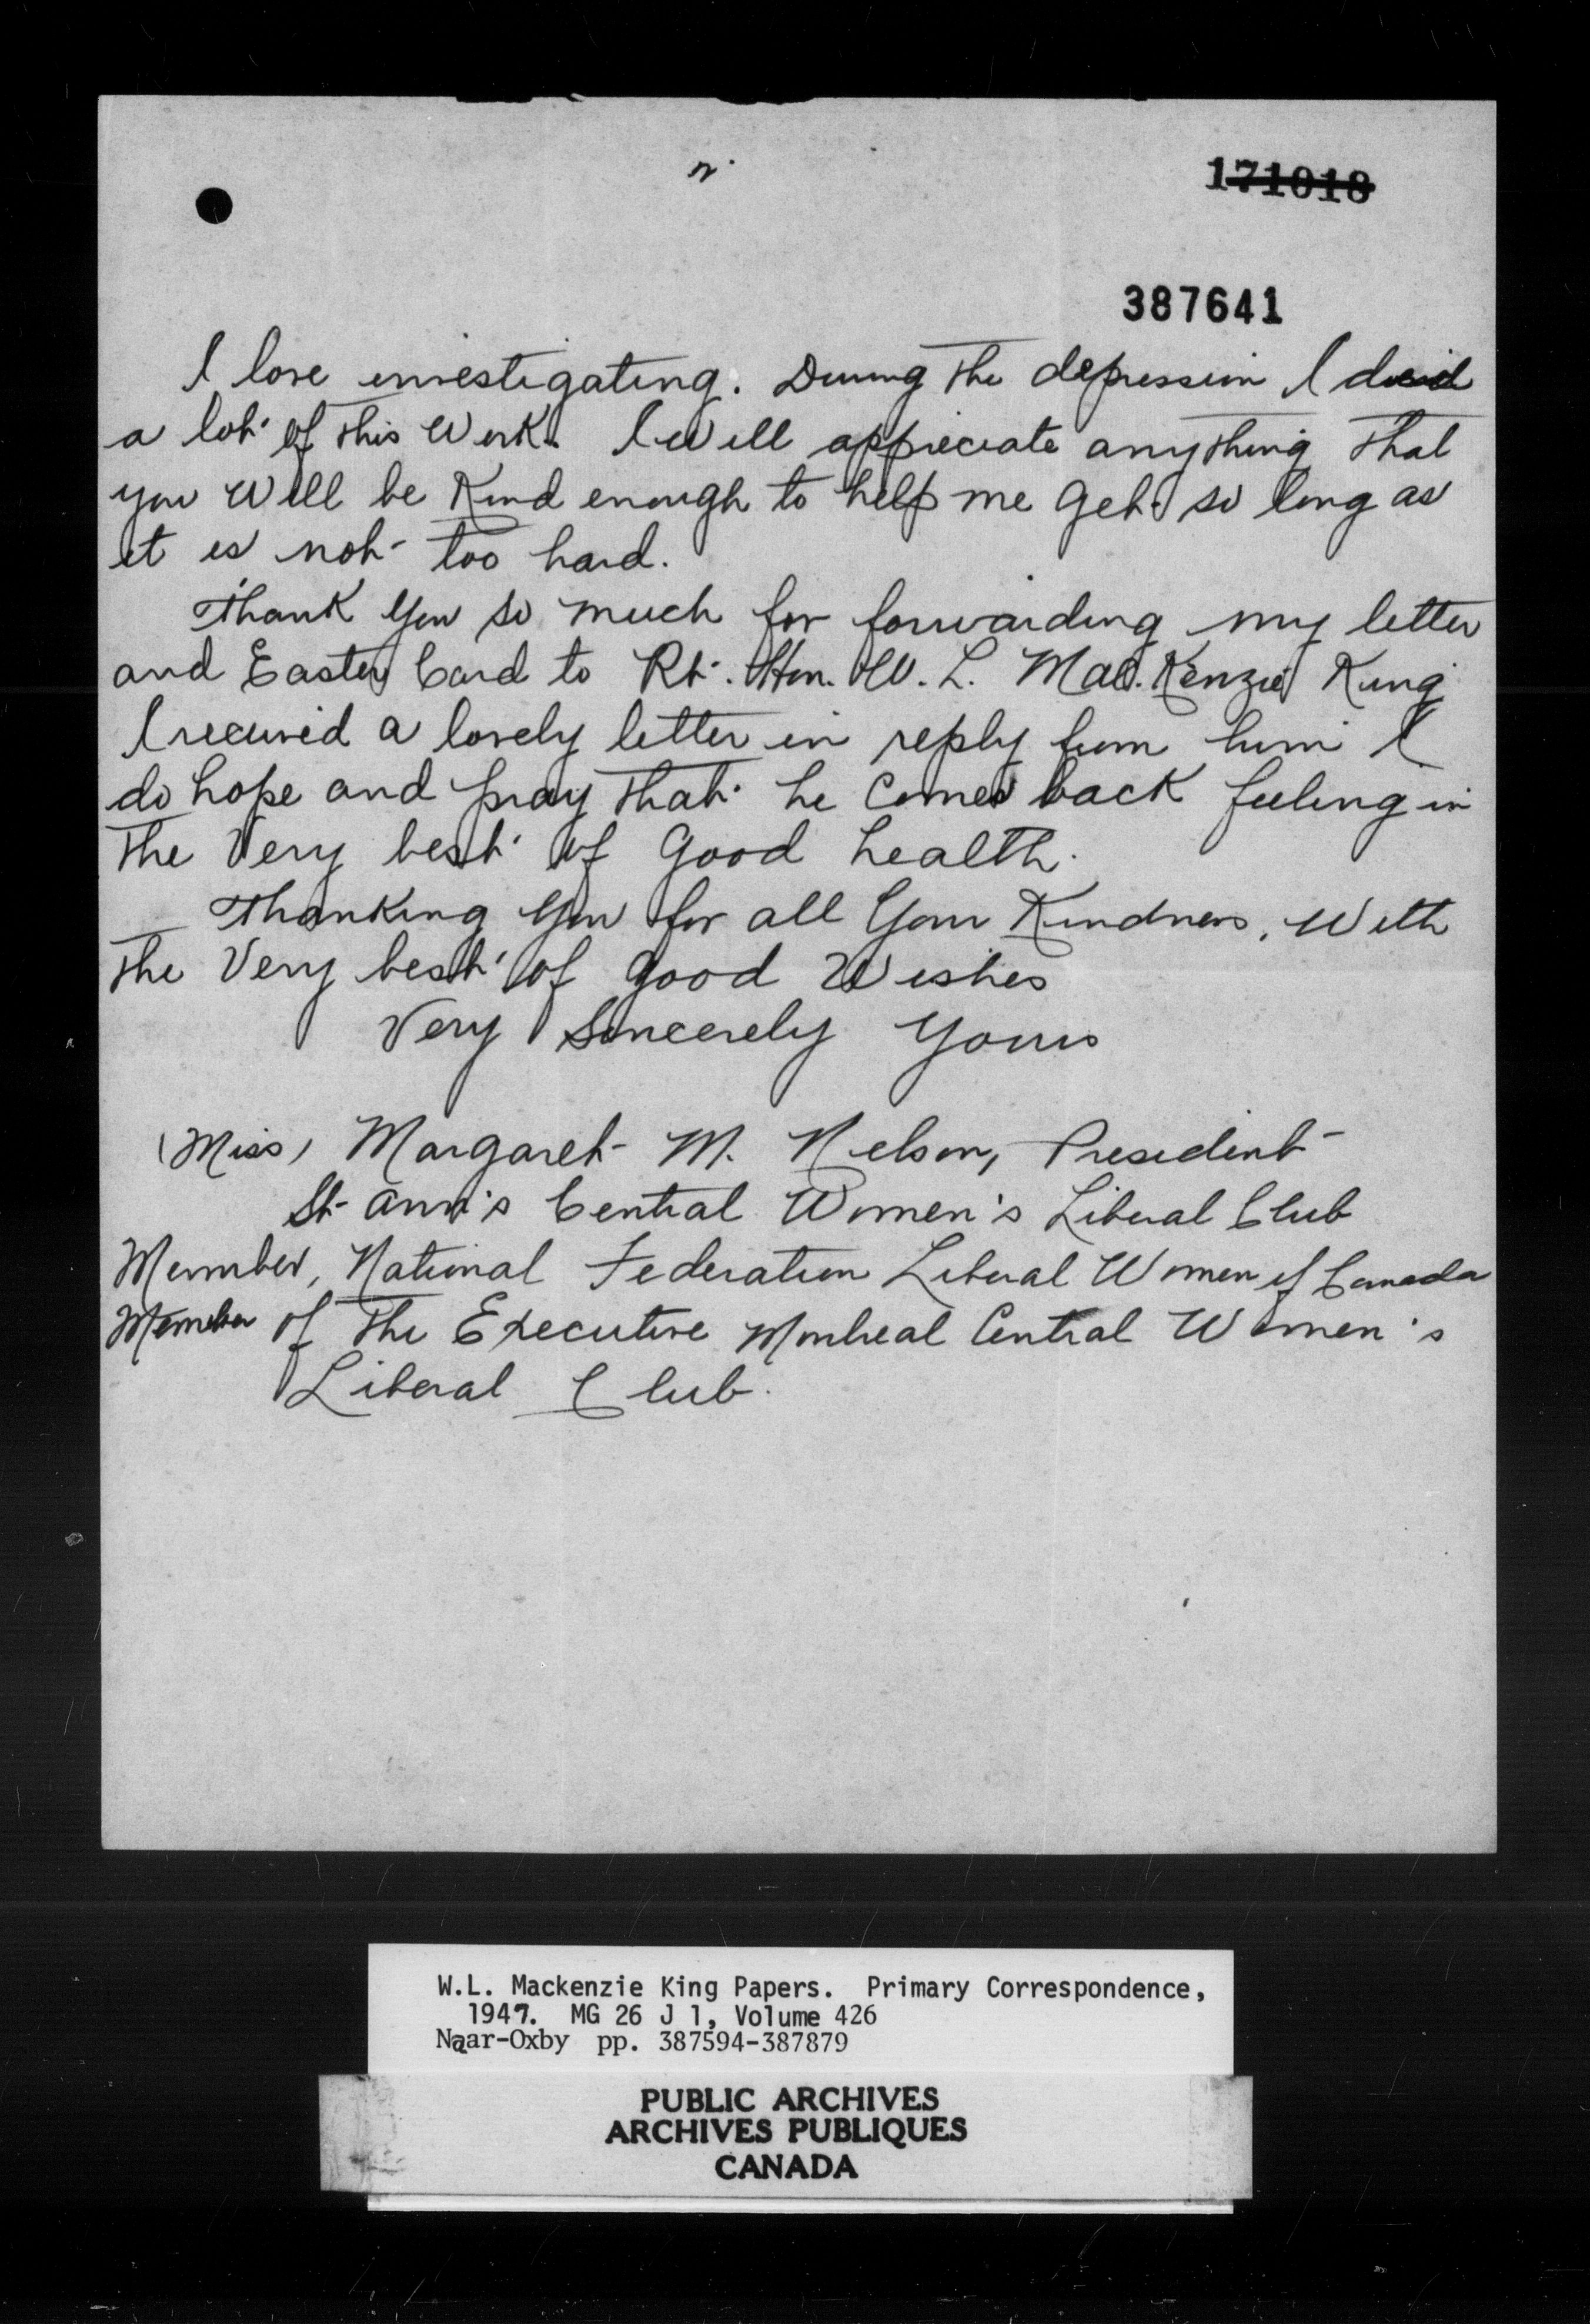 171018
387641
I love investigating. During the depression I did
a lot of this work. I will appreciate anything that
you will be kind enough to help me get so long as
it is not too hard.
Thank you so much for forwarding my letter
and Easter Card to Rt. Hon. W. L. Mac.Kenzie King
I received a lovely letter in reply from him I
do hope and pray that he comes back feeling in
the Very best of Good health.
Thanking you for all your Kindness, With
the Very best of good Wishes
Very Sincerely Yours
(Miss) Margaret M. Nelson, President
St Ann's Central Women's Liberal Club
Member, National Federation Liberal Women of Canada
Member of the Executive Montreal Central Women's
Liberal Club.
W.L. Mackenzie King Papers. Primary Correspondence,
1947. MG 26 J 1, Volume 426
Naar-Oxby pp. 387594-387879
PUBLIC ARCHIVES
ARCHIVES PUBLIQUES
CANADA